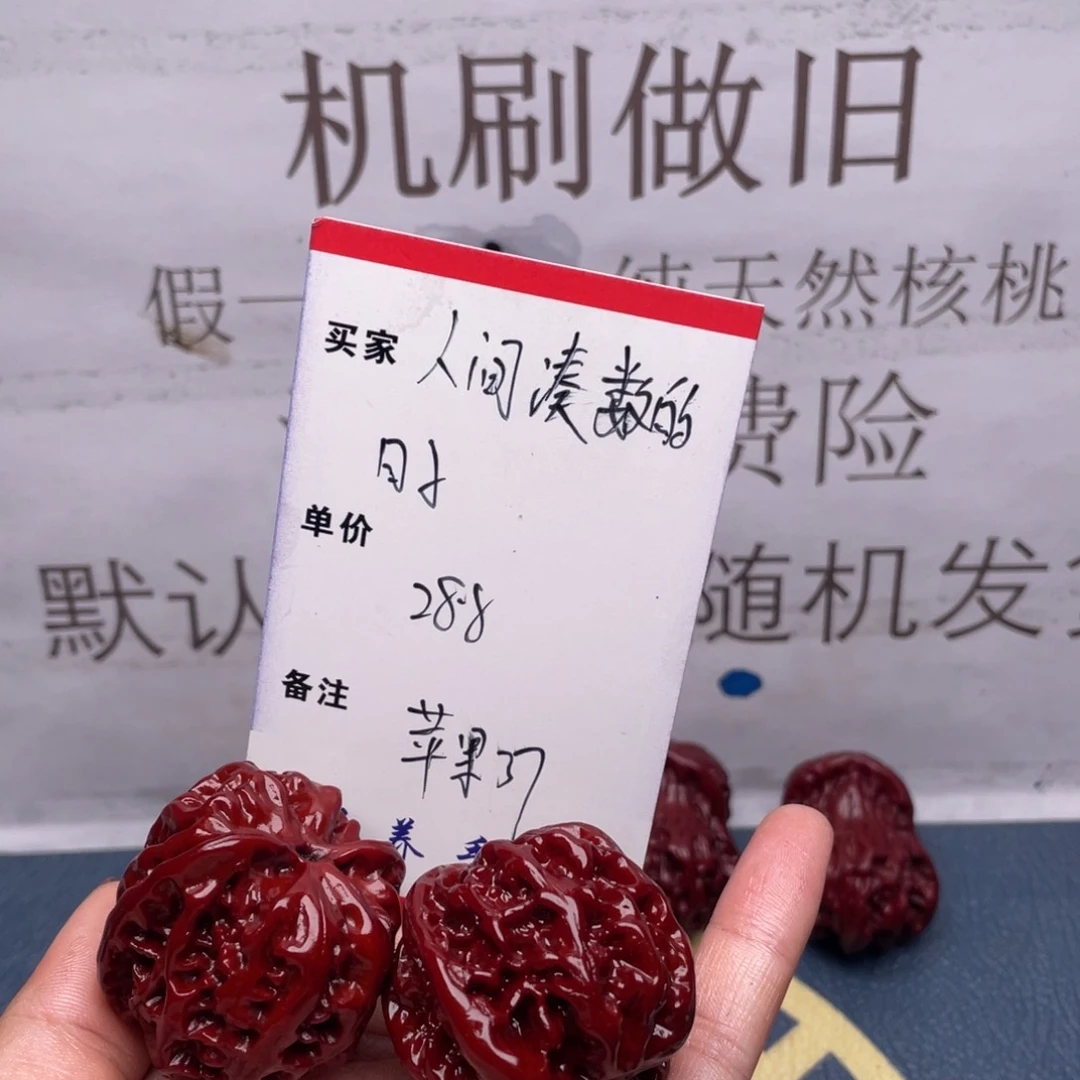 机刷做旧
假一 纯天然核桃
费险
默认 随机发
买家 人间凑数的
日子
单价
288
备注
苹果37
养